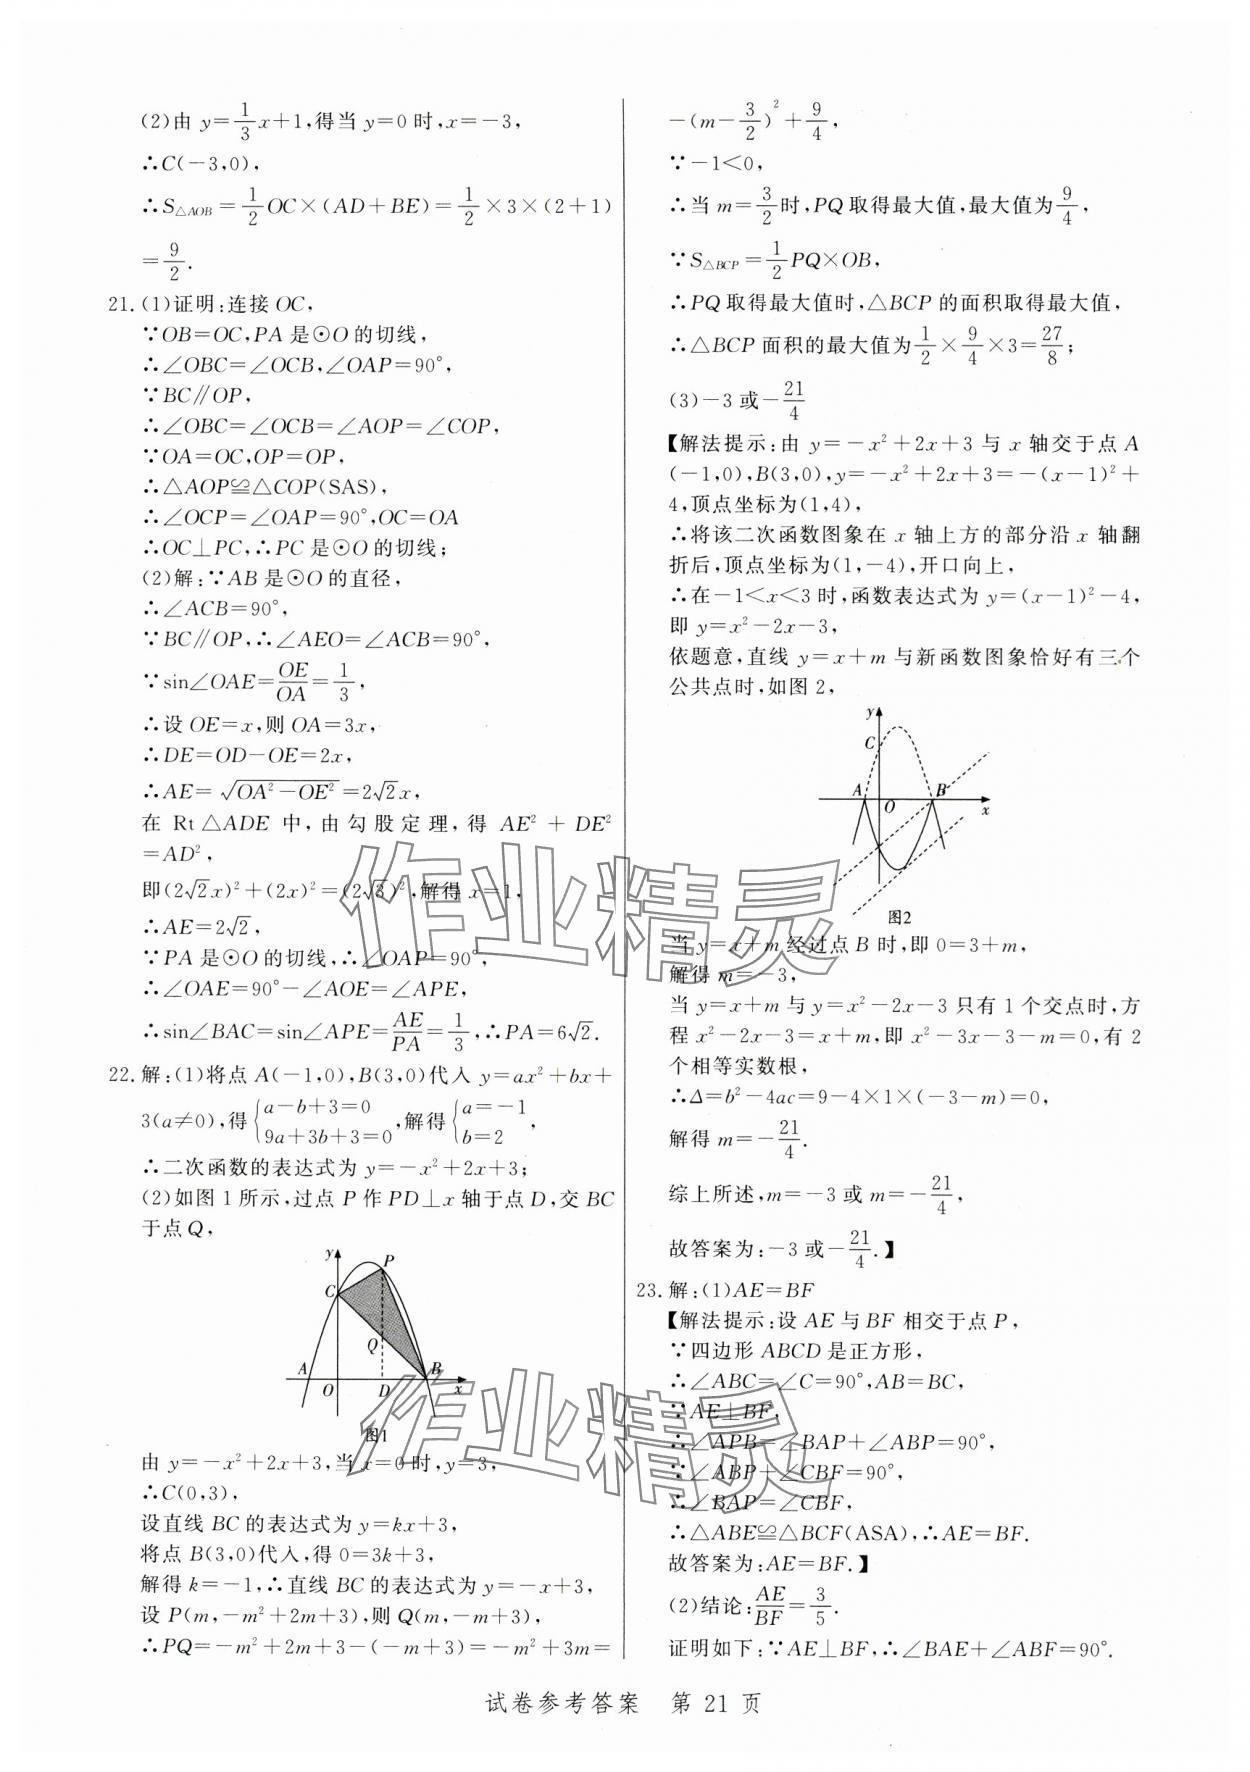 (2)由 y=1/3x+1,得当 y=0 时,x=-3,
∴C(-3,0),
∴S△AOB=1/2OC×(AD+BE)=1/2×3×(2+1)
=9/2.
21.(1)证明:连接 OC,
∵OB=OC,PA 是⊙O 的切线,
∴∠OBC=∠OCB,∠OAP=90°,
∵BC∥OP,
∴∠OBC=∠OCB=∠AOP=∠COP,
∵OA=OC,OP=OP,
∴△AOP≌△COP(SAS),
∴∠OCP=∠OAP=90°,OC=OA
∴OC⊥PC,∴PC 是⊙O 的切线;
(2)解:∵AB 是⊙O 的直径,
∴∠ACB=90°,
∵BC∥OP,∴∠AEO=∠ACB=90°,
∵sin∠OAE=OE/OA=1/3,
∴设 OE=x,则 OA=3x,
∴DE=OD-OE=2x,
∴AE=√(OA²-OE²)=2√2x,
在 Rt△ADE 中,由勾股定理,得 AE²+DE²
=AD²,
即(2√2x)²+(2x)²=(2√3)²,解得 x=1,
∴AE=2√2,
∵PA 是⊙O 的切线,∴∠OAP=90°,
∴∠OAE=90°-∠AOE=∠APE,
∴sin∠BAC=sin∠APE=AE/PA=1/3,∴PA=6√2.
22.解:(1)将点 A(-1,0),B(3,0)代入 y=ax²+bx+
3(a≠0),得{a-b+3=0 9a+3b+3=0,解得{a=-1 b=2,
∴二次函数的表达式为 y=-x²+2x+3;
(2)如图 1 所示,过点 P 作 PD⊥x 轴于点 D,交 BC
于点 Q,
y
P
C
Q
A
B
O
D
x
图1
由 y=-x²+2x+3,当 x=0 时,y=3,
∴C(0,3),
设直线 BC 的表达式为 y=kx+3,
将点 B(3,0)代入,得 0=3k+3,
解得 k=-1,∴直线 BC 的表达式为 y=-x+3,
设 P(m,-m²+2m+3),则 Q(m,-m+3),
∴PQ=-m²+2m+3-(-m+3)=-m²+3m=
-(m-3/2)²+9/4,
∵-1<0,
∴当 m=3/2时,PQ 取得最大值,最大值为9/4,
∵S△BCP=1/2PQ×OB,
∴PQ 取得最大值时,△BCP 的面积取得最大值,
∴△BCP 面积的最大值为1/2×9/4×3=27/8;
(3)-3 或-21/4
【解法提示:由 y=-x²+2x+3 与 x 轴交于点 A
(-1,0),B(3,0),y=-x²+2x+3=-(x-1)²+
4,顶点坐标为(1,4),
∴将该二次函数图象在 x 轴上方的部分沿 x 轴翻
折后,顶点坐标为(1,-4),开口向上,
∴在-1<x<3 时,函数表达式为 y=(x-1)²-4,
即 y=x²-2x-3,
依题意,直线 y=x+m 与新函数图象恰好有三个
公共点时,如图 2,
y
C
A
B
O
x
图2
当 y=x+m 经过点 B 时,即 0=3+m,
解得 m=-3,
当 y=x+m 与 y=x²-2x-3 只有 1 个交点时,方
程 x²-2x-3=x+m,即 x²-3x-3-m=0,有 2
个相等实数根,
∴Δ=b²-4ac=9-4×1×(-3-m)=0,
解得 m=-21/4.
综上所述,m=-3 或 m=-21/4,
故答案为:-3 或-21/4.】
23.解:(1)AE=BF
【解法提示:设 AE 与 BF 相交于点 P,
∵四边形 ABCD 是正方形,
∴∠ABC=∠C=90°,AB=BC,
∵AE⊥BF,
∴∠APB=∠BAP+∠ABP=90°,
∵∠ABP+∠CBF=90°,
∴∠BAP=∠CBF,
∴△ABE≌△BCF(ASA),∴AE=BF.
故答案为:AE=BF.】
(2)结论:AE/BF=3/5.
证明如下:∵AE⊥BF,∴∠BAE+∠ABF=90°.
作业精灵
作业精灵
试卷参考答案 第 21 页